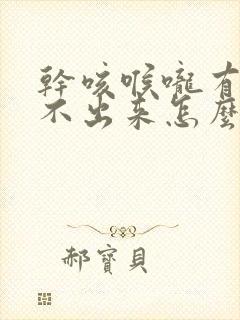 幹咳喉嚨有
不出來怎麼
郝寶貝